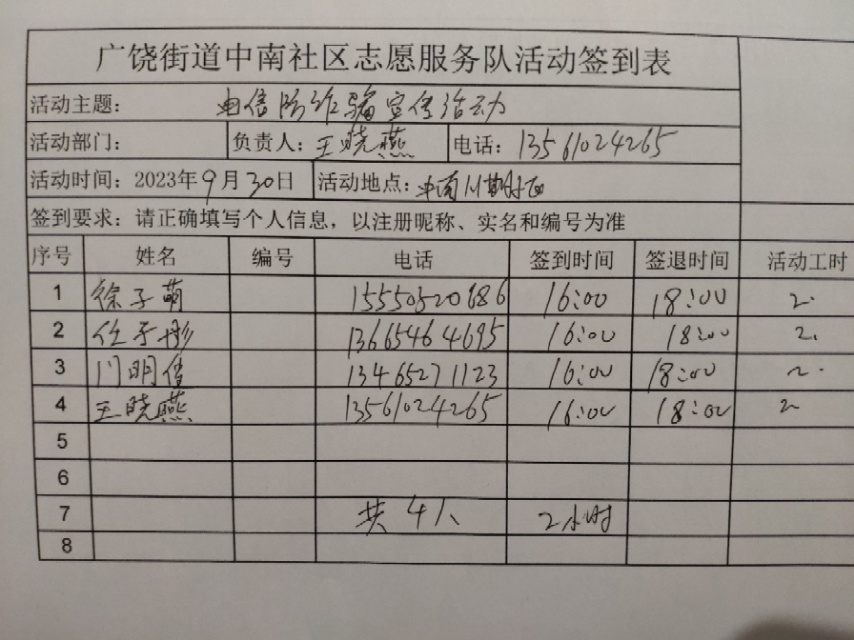 广饶街道中南社区志愿服务队活动签到表
活动主题: 电信防诈骗宣传活动
活动部门: 负责人: 王晓燕 电话: 13561024265
活动时间: 2023年9月30日 活动地点: 中南
签到要求: 请正确填写个人信息，以注册昵称、实名和编号为准
序号 姓名 编号 电话 签到时间 签退时间 活动工时
1 徐子萌 15550520686 16:00 18:00 2.
2 任子彤 13665464695 16:00 18:00 2.
3 门明佳 13465271123 16:00 18:00 2.
4 王晓燕 13561024265 16:00 18:00 2
5
6
7 共4人 2小时
8